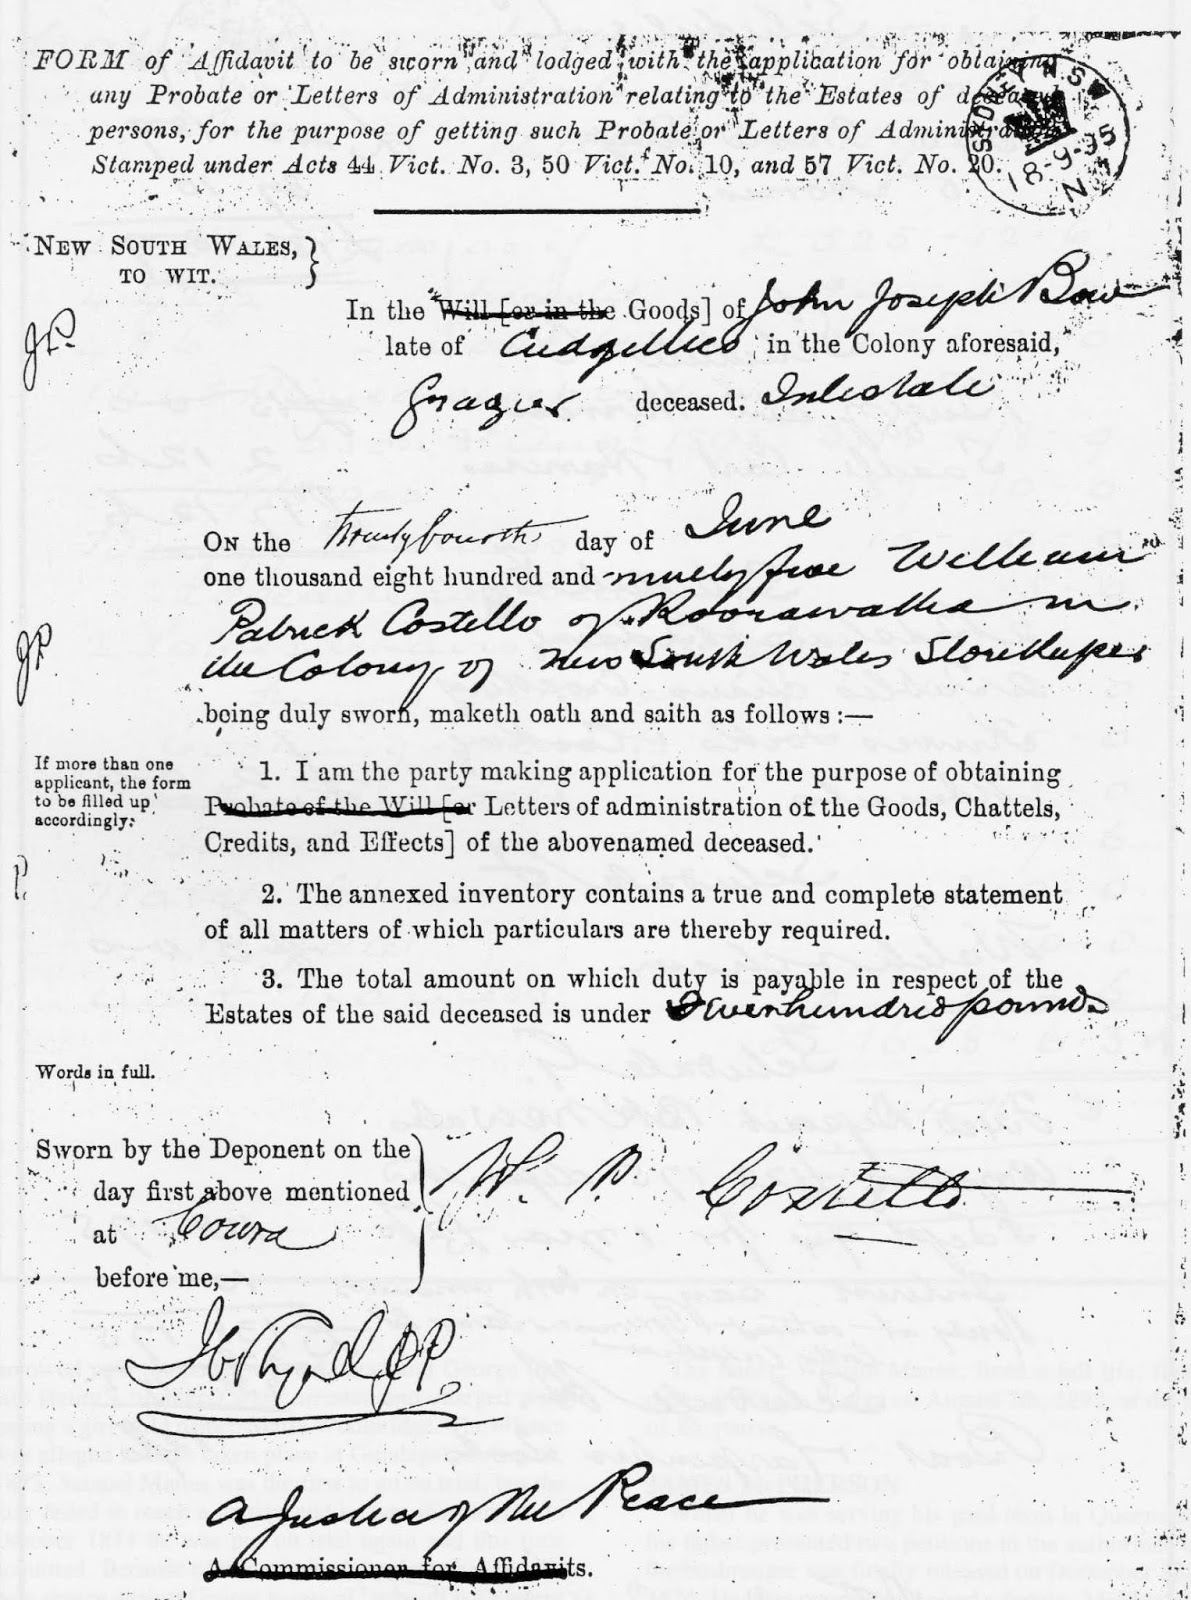 FORM of Affidavit to be sworn and lodged with the application for obtaining
any Probate or Letters of Administration relating to the Estates of deceased
persons, for the purpose of getting such Probate or Letters of Administration
Stamped under Acts 44 Vict. No. 3, 50 Vict. No. 10, and 57 Vict. No. 20.
18-9-95
NEW SOUTH WALES,
TO WIT.
In the Will [or in the Goods] of John Joseph Bow
JP
late of Cudgellico in the Colony aforesaid,
Grazier deceased. Intestate
On the twentyfourth day of June
one thousand eight hundred and ninety five William
Patrick Costello of Koorawatha in
JP
the Colony of New South Wales Storekeeper
being duly sworn, maketh oath and saith as follows :—
If more than one
applicant, the form
to be filled up
accordingly.
1. I am the party making application for the purpose of obtaining
Probate of the Will [or Letters of administration of the Goods, Chattels,
Credits, and Effects] of the abovenamed deceased.
2. The annexed inventory contains a true and complete statement
of all matters of which particulars are thereby required.
3. The total amount on which duty is payable in respect of the
Estates of the said deceased is under Seven hundred pounds
Words in full.
Sworn by the Deponent on the
day first above mentioned
at Cowra
before me,—
W. P. Costello
JP
A Justice of the Peace
A Commissioner for Affidavits.